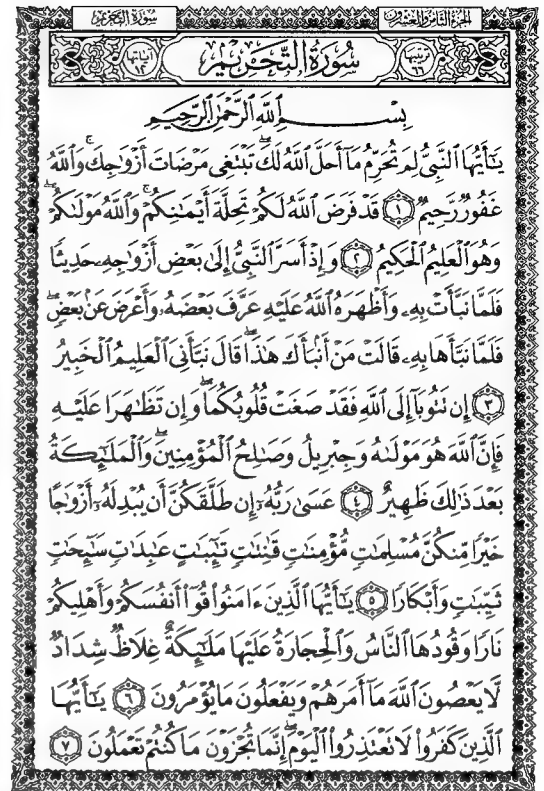 سُورَةُ التَّحْرِيمِ الجُزْءُ الثَّامِنُ وَالعِشْرُونَ
آياتها ١٢ سُورَةُ التَّحْرِيمِ ترتيبها ٦٦
بِسْمِ ٱللَّهِ ٱلرَّحْمَٰنِ ٱلرَّحِيمِ
يَـٰٓأَيُّهَا ٱلنَّبِىُّ لِمَ تُحَرِّمُ مَآ أَحَلَّ ٱللَّهُ لَكَ ۖ تَبْتَغِى مَرْضَاتَ أَزْوَٰجِكَ ۚ وَٱللَّهُ
غَفُورٌ رَّحِيمٌ ١ قَدْ فَرَضَ ٱللَّهُ لَكُمْ تَحِلَّةَ أَيْمَـٰنِكُمْ ۚ وَٱللَّهُ مَوْلَىٰكُمْ ۖ
وَهُوَ ٱلْعَلِيمُ ٱلْحَكِيمُ ٢ وَإِذْ أَسَرَّ ٱلنَّبِىُّ إِلَىٰ بَعْضِ أَزْوَٰجِهِۦ حَدِيثًا
فَلَمَّا نَبَّأَتْ بِهِۦ وَأَظْهَرَهُ ٱللَّهُ عَلَيْهِ عَرَّفَ بَعْضَهُۥ وَأَعْرَضَ عَنۢ بَعْضٍ ۖ
فَلَمَّا نَبَّأَهَا بِهِۦ قَالَتْ مَنْ أَنۢبَأَكَ هَـٰذَا ۖ قَالَ نَبَّأَنِىَ ٱلْعَلِيمُ ٱلْخَبِيرُ
٣ إِن تَتُوبَآ إِلَى ٱللَّهِ فَقَدْ صَغَتْ قُلُوبُكُمَا ۖ وَإِن تَظَـٰهَرَا عَلَيْهِ
فَإِنَّ ٱللَّهَ هُوَ مَوْلَىٰهُ وَجِبْرِيلُ وَصَـٰلِحُ ٱلْمُؤْمِنِينَ ۖ وَٱلْمَلَـٰٓئِكَةُ
بَعْدَ ذَٰلِكَ ظَهِيرٌ ٤ عَسَىٰ رَبُّهُۥٓ إِن طَلَّقَكُنَّ أَن يُبْدِلَهُۥٓ أَزْوَٰجًا
خَيْرًا مِّنكُنَّ مُسْلِمَـٰتٍ مُّؤْمِنَـٰتٍ قَـٰنِتَـٰتٍ تَـٰٓئِبَـٰتٍ عَـٰبِدَٰتٍ سَـٰٓئِحَـٰتٍ
ثَيِّبَـٰتٍ وَأَبْكَارًا ٥ يَـٰٓأَيُّهَا ٱلَّذِينَ ءَامَنُوا۟ قُوٓا۟ أَنفُسَكُمْ وَأَهْلِيكُمْ
نَارًا وَقُودُهَا ٱلنَّاسُ وَٱلْحِجَارَةُ عَلَيْهَا مَلَـٰٓئِكَةٌ غِلَاظٌ شِدَادٌ
لَّا يَعْصُونَ ٱللَّهَ مَآ أَمَرَهُمْ وَيَفْعَلُونَ مَا يُؤْمَرُونَ ٦ يَـٰٓأَيُّهَا
ٱلَّذِينَ كَفَرُوا۟ لَا تَعْتَذِرُوا۟ ٱلْيَوْمَ ۖ إِنَّمَا تُجْزَوْنَ مَا كُنتُمْ تَعْمَلُونَ ٧